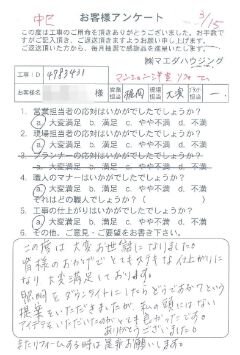 中区 お客様アンケート 3/15
この度は工事のご用命を頂きありがとうございました。お手数で
すがご記入頂き、ご返送頂きますようお願い申し上げます。
ご返送頂いた方から、毎月抽選で感謝品を進呈いたします。
㈱マエダハウジング
工事ID 4983431 マンション洋室リフォーム
お客様名 様 営業担当 堀内 工事担当 大実
1. 営業担当者の応対はいかがでしたでしょうか?
a. 大変満足 b. 満足 c. やや不満 d. 不満
2. 現場担当者の応対はいかがでしたでしょうか?
a. 大変満足 b. 満足 c. やや不満 d. 不満
3. プランナーの応対はいかがでしたでしょうか?
a. 大変満足 b. 満足 c. やや不満 d. 不満
4. 職人のマナーはいかがでしたでしょうか?
a. 大変満足 b. 満足 c. やや不満 d. 不満
それはどの職人でしょうか?( )
5. 工事の仕上がりはいかがでしたでしょうか?
a. 大変満足 b. 満足 c. やや不満 d. 不満
6. その他、ご意見・ご要望をお聞かせ下さい!
この度は大変お世話になりました。
皆様のおかげでとてもステキな仕上がりに
なり大変満足しております。
照明をダウンライトにしたらどうですか?という
提案をいただきましたが、私の頭にはない
アイデアをいただいたのがとても良かったです。
ありがとうございました。
またリフォームする時は是非お願いします。